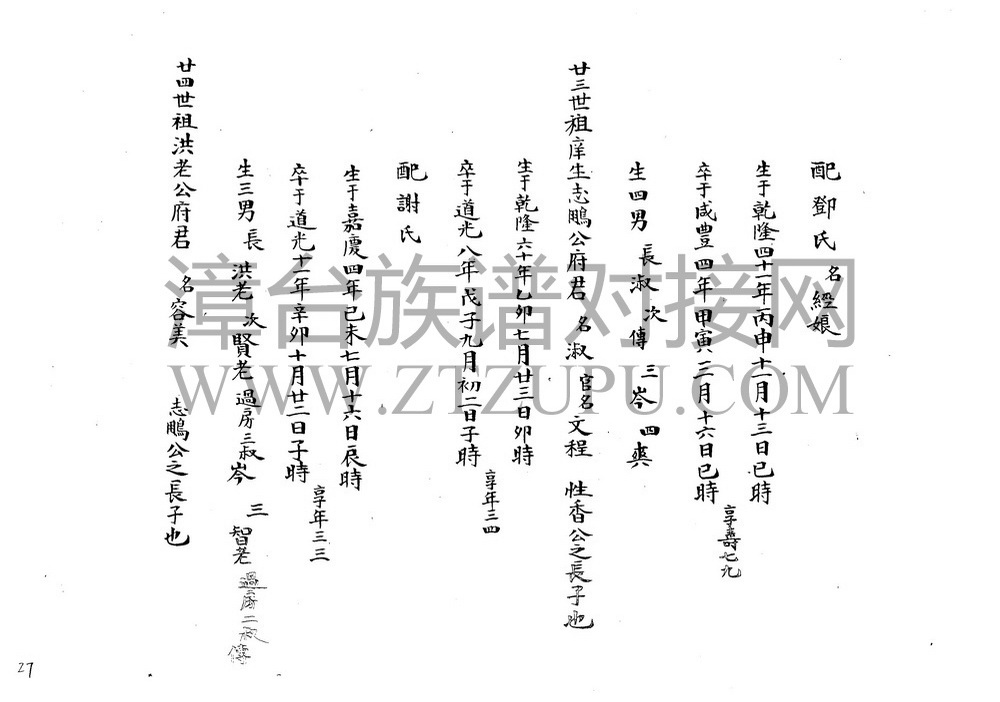 配鄧氏 名經娘
生于乾隆四十一年丙申十一月十三日巳時
卒于咸豐四年甲寅三月十六日巳時 享壽七九
生四男 長淑 次傳 三岑 四爽
廿三世祖庠生志鵬公府君 名淑 官名文程 性香公之長子也
生于乾隆六十年乙卯七月廿三日卯時
卒于道光八年戊子九月初二日子時 享年三四
配謝氏
生于嘉慶四年己未七月十六日辰時
卒于道光十一年辛卯十月廿二日子時 享年三三
生三男 長洪老 次賢老 過房三叔岑 三智老 過房二叔傳
廿四世祖洪老公府君 名容美 志鵬公之長子也
漳台族谱对接网
WWW.ZTZUPU.COM
27